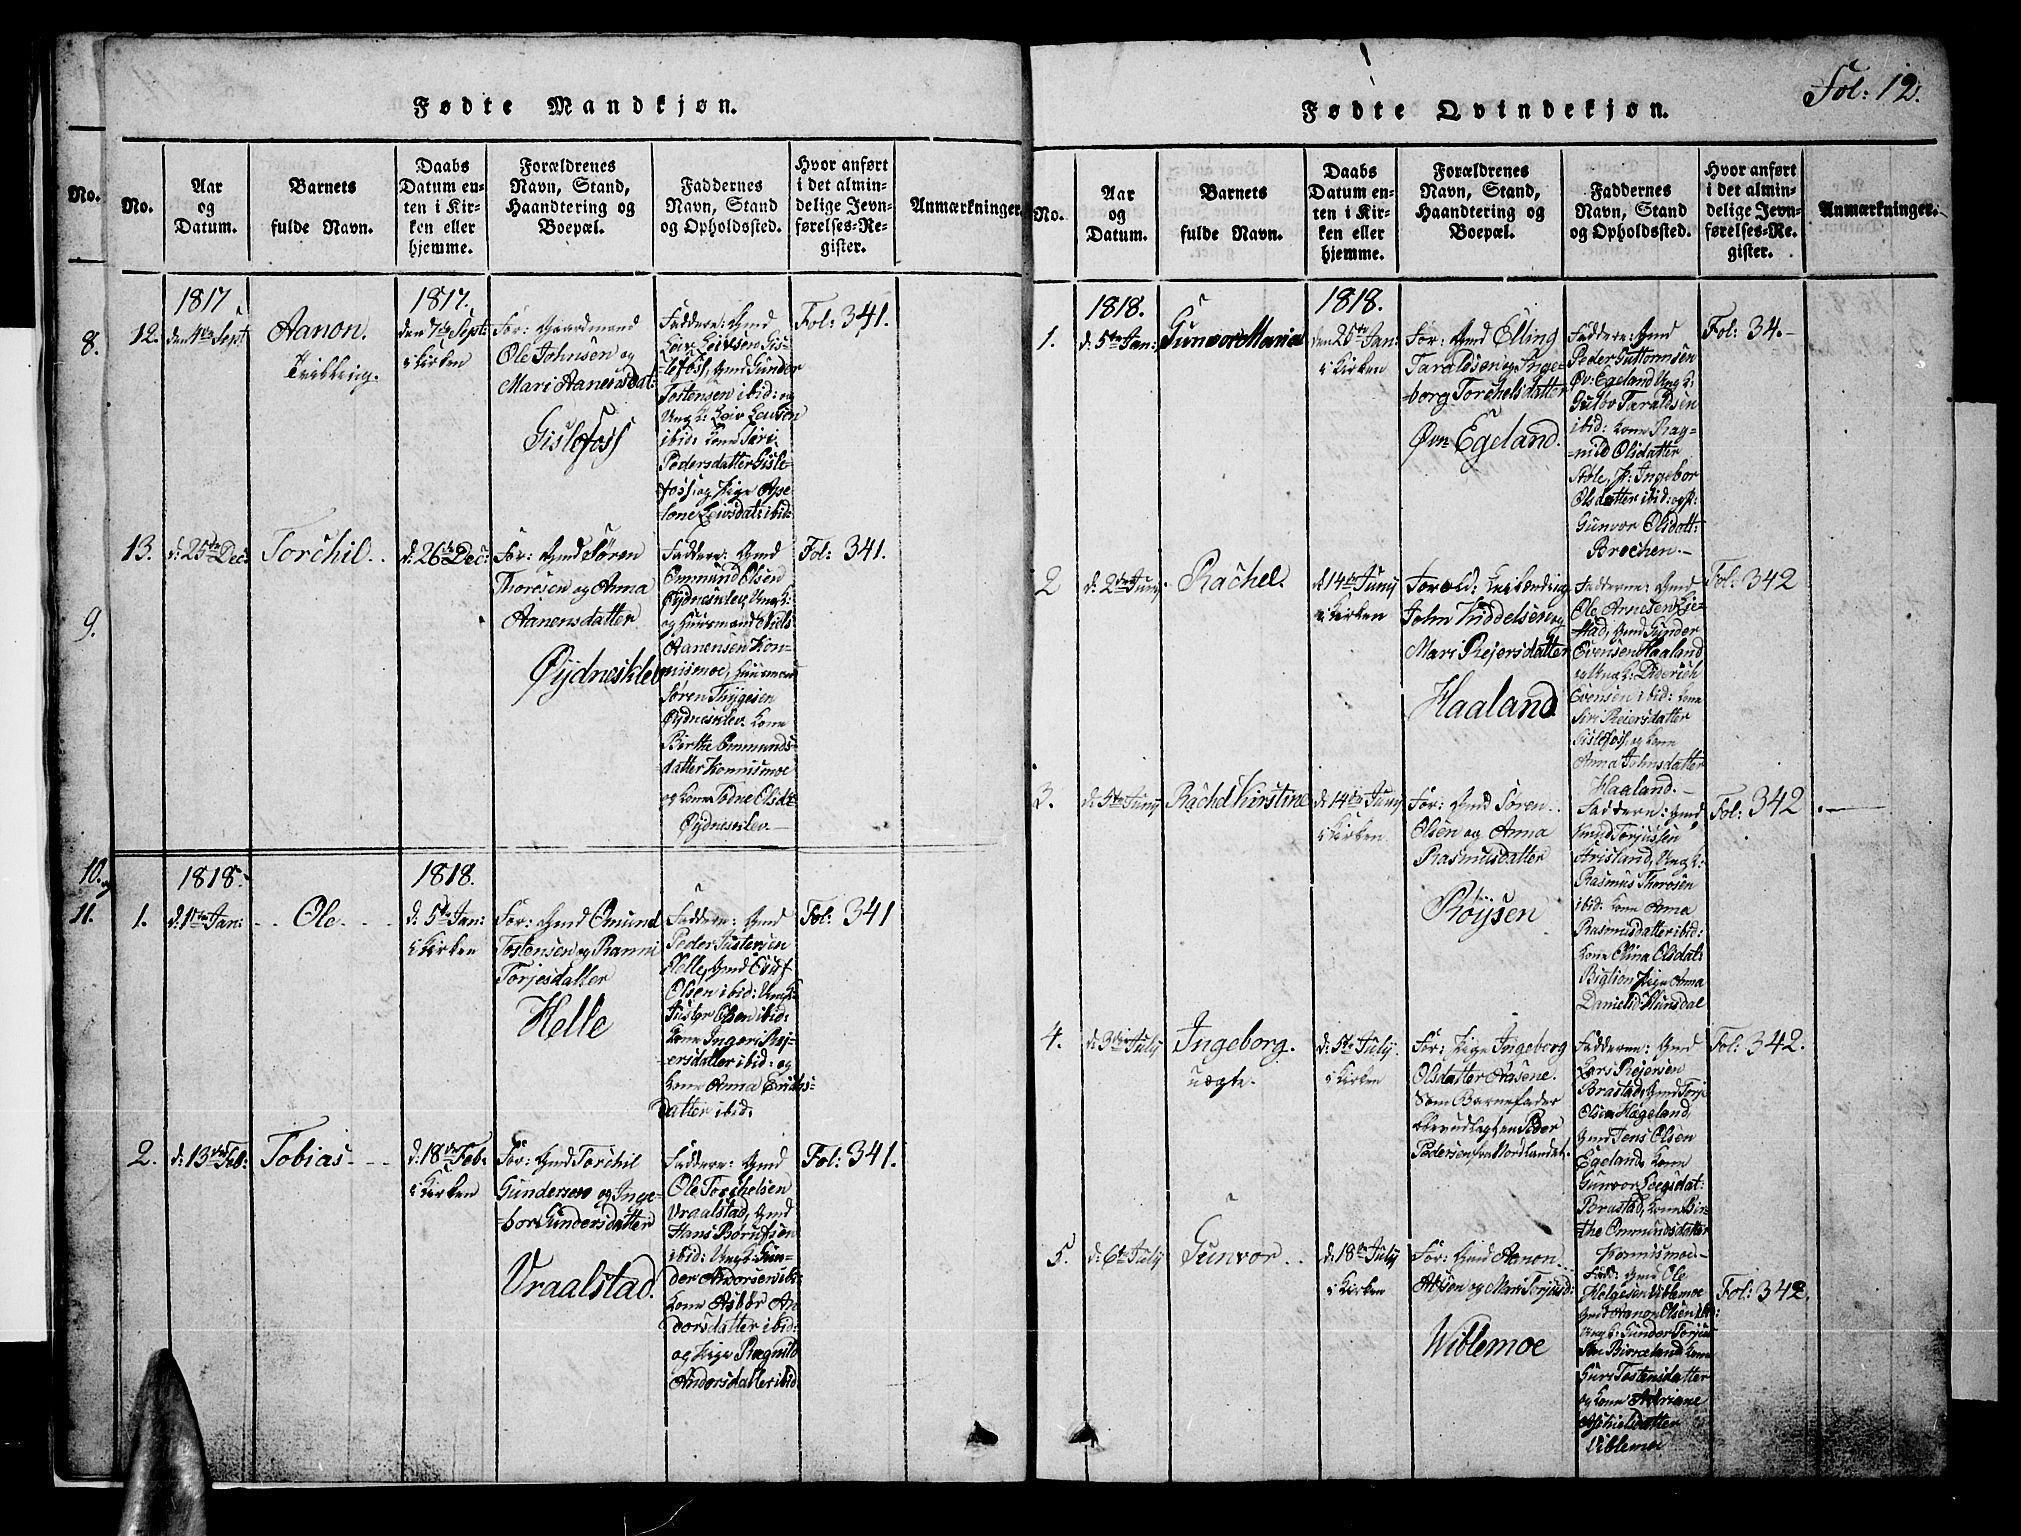 Fødte Mandkjøn.
No.
No.
Aar
og
Datum.
Barnets
fulde Navn.
Daabs
Datum en-
ten i Kir-
ken eller
hjemme.
Forældrenes
Navn, Stand,
Haandtering og
Boepæl.
Faddernes
Navn, Stand
og Opholdssted.
Hvor anført
i det almin-
delige Jevn-
førelses-Re-
gister.
Anmærkninger.
8.
9.
10. og
11.
1817
12.
den 4de Sept
Aanon.
Tvilling.
1817.
den 7de Sept:
i Kirken
For: Gaardmand
Ole Johnsen og
Mari Aanensdat:
Gislefoss
Faddere: Gmd
Leiv Leivsen Gis-
lefoss, Gmd Gunder
Tostensen ibid: og
Ungk: Leiv Leivsen
ibid: Kone Siri
Pedersdatter Gisle-
foss, og Pige Axe-
lone Leivsdat: ibid:
Fol: 341.
13.
d: 25de Dec:
Torchil
d: 26de Dec:
For: Gmd Søren
Thorsen og Anna
Aanensdatter
Øydnesklev
Faddere: Gmd
Ommund Olsen
Øydnesklev, Ungk:
og Huusmand Niels
Aanensen Kon-
nismoe, Huusmand
Søren Thygesen
Øydnesklev Kone
Berthe Ommunds-
datter Konnismoe
og Kone Todne Olsdt
Øydnesklev
Fol: 341.
1818.
1.
d: 1ste Jan:
Ole
1818.
d: 5te Jan:
i Kirken
For: Gmd Omund
Tostensen og Ranni
Torjesdatter
Helle
Faddere: Gmd
Peder Justersen
Helle, Gmd
Olsen ibid: Ungk:
Olsen ibid:
Kone Ingeri Rej-
ersdatter ibid: og
Kone Anna Erichs-
datter ibid:
Fol: 341
2.
d: 13de Feb:
Tobias
d: 18de Feb:
i Kirken
For: Gmd Torchil
Gundersen og Inge-
bor Gundersdatter
Vraalstad.
Faddere: Gmd
Ole Torchelsen
Vraalstad, Gmd
Hans Børufsen
ibid: Ungk: Gun-
der Andorsen ibi:
Kone Asbor An-
dorsdatter ibid:
og Pige Ragnild
Andorsdatter ibid
Fol: 341.
Fol: 12.
Fødte Qvindekjøn.
No.
Aar
og
Datum.
Barnets
fulde Navn.
Daabs
Datum en-
ten i Kir-
ken eller
hjemme.
Forældrenes
Navn, Stand,
Haandtering og
Boepæl.
Faddernes
Navn, Stand
og Opholdssted.
Hvor anført
i det almin-
delige Jevn-
førelses-Re-
gister.
Anmærkninger.
1818.
1.
d: 5te Jan:
Gunvor Maria
1818.
den 25de Jan:
i Kirken
For: Gmd Elling
Taraldsen og Inge-
borg Torchelsdatter
Øvr Egeland.
Faddere: Gmd
Peder Guttormsen
Øv: Egeland Ungk:
Gulbv Taraldsen
ibid: Kone Rag-
nild Olsdatter
Stole, p: Ingebor
Olsdatter ibid: og p:
Gunvor Olsdatt:
Brechen.
Fol: 34.
2
d: 2den Juny
Rachel.
d: 14de Juny
i Kirken
Foræld: Leilænding
John Triddelsen og
Mari Rejersdatter
Haaland
Fadderne: Gmd
Ole Arnesen
Gmd Gunder
Evensen Haaland
og Ungk: Diderich
Evensen ibid: Kone
Siri Reiersdatter
Gislefoss, og Kone
Anna Johnsdatter
Haaland.
Fol: 342
3.
d: 5te Juny
Rachel Kirstine
d: 14de Juny
i Kirken
For: Gmd Søren
Olsen og Anna
Rasmusdatter
Røysen
Faddern: Gmd
Knud Torjussen
Ungk:
Rasmus Thorsen
ibid: Kone Anna
Rasmusdatter ibid:
Kone Elina Olsdat:
Biglion Pige Anna
Danielsd: Hunsdal
Fol: 342
4.
d: 3die July
Ingeborg.
uægte.
d: 5te July.
i Kirken
For: Pige Ingeborg
Olsdatter Aasene.
Som Barnefader
blev udlagt en Peder
Pedersen fra Nordlandet.
Fadderne: Gmd
Lars Rejersen
Brastad, Gmd Torje
Olsen Hægeland,
Gmd Jens Olsen
Egeland, Kone
Gunvor
Brastad, Kone Bir-
the Ommundsdatter
Konnismoe.
Fol: 342.
5.
d: 6te July
Gunvor
d: 18de July
i Kirken
For: Gmd Aanon
Olsen og Mari Torjusd:
Wiblemoe
Fadd: Gmd Ole
Helgesen Viblemoe
Gmd Aanon Olsen ibid:
Ungk: Gunder Torjus-
sen Birkeland Kone
Guri Tostensdatter
og Kone Adriane
Viblemoe
Fol: 342.